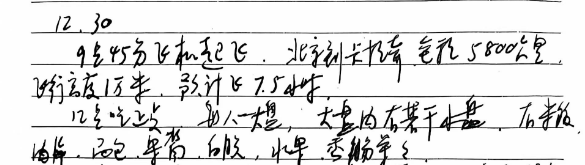 12.30
9点45分飞机起飞. 北京到卡拉奇 全程5800公里,
飞行高度1万米. 预计飞7.5小时.
12点吃正点, 每人一大盘, 大盘内有若干小盘. 有米饭
肉片. 面包. 果酱. 白脱, 水果. 香肠等等